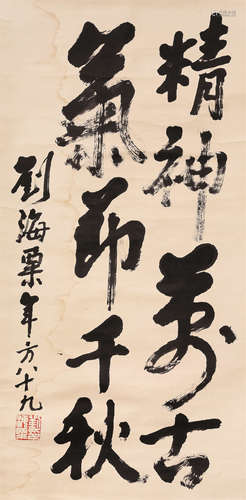 精神萬古
氣節千秋
劉海粟年方八十九